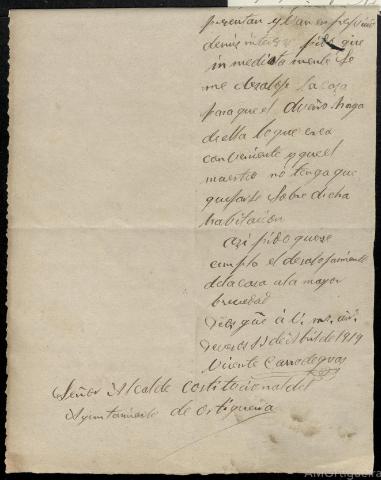 presentan y van en perjuicio
demis interes pido que
inmediatamente se
me desaloje la casa
para que el dueño haga
de ella lo que crea
conveniente y que el
maestro no tenga que
quejarse sobre dicha
habitacion
asi pido que se
cumpla el desalojamiento
de la casa a la mayor
brevedad
Dios gûe à V. m. añ.
11 de Abril de 1919
Vicente Carrodeguas
Señor Alcalde Costitucional del
Ayuntamiento de Ortigueira
AMOrtigueira